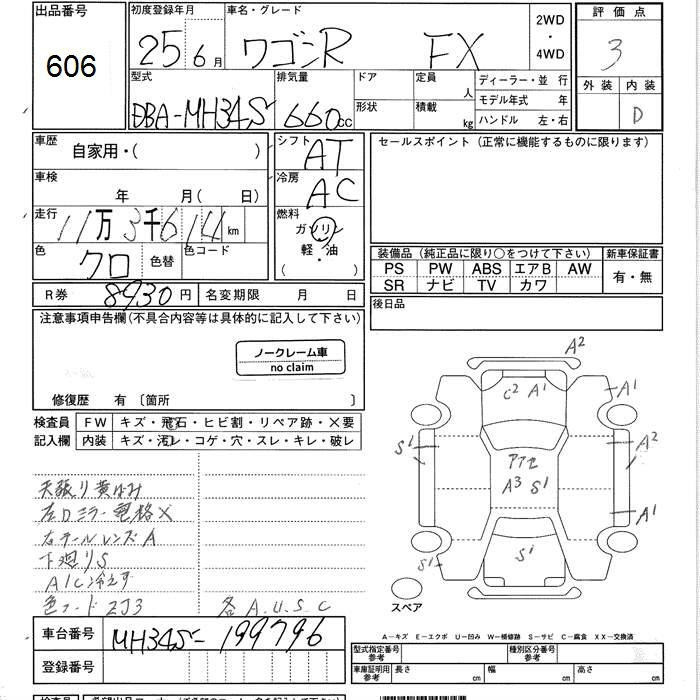 出品番号
606
初度登録年月
25年6月
車名・グレード
ワゴンR FX
2WD
・
4WD
評価点
3
外装 内装
D
型式
DBA-MH34S
排気量
660cc
ドア
形状
定員
人
積載
kg
ディーラー・並行
モデル年式 年
ハンドル 左・右
車歴
自家用・( )
車検
年 月( 日)
走行
11万3千614km
色
クロ
色替
色コード
シフト
AT
冷房
AC
燃料
ガソリン
軽・油
( )
セールスポイント(正常に機能するものに限ります)
装備品(純正品に限り○をつけて下さい)
新車保証書
PS PW ABS エアB AW
SR ナビ TV カワ
有・無
R券 8930円
名変期限 月 日
後日品
注意事項申告欄(不具合内容等は具体的に記入して下さい)
ノークレーム車
no claim
修復歴 有 〔箇所 〕
検査員
記入欄
FW キズ・飛石・ヒビ割・リペア跡・×要
内装 キズ・汚レ・コゲ・穴・スレ・キレ・破レ
天張り黄ばみ
左Dミラー電格×
右テールレンズA
下廻りS
A/C冷えず
色コード ZJ3
各A.U.S.C
A2
C2 A1
A1
S1
A2
アアセ
A3 S1
A1
S1
S1
スペア
A−キズ E−エクボ U−凹み W−補修跡 S−サビ C−腐食 XX−交換済
車台番号
MH34S-199796
登録番号
型式指定番号
参考
種別区分番号
参考
車庫証明用
参考
長さ cm
幅 cm
高さ cm